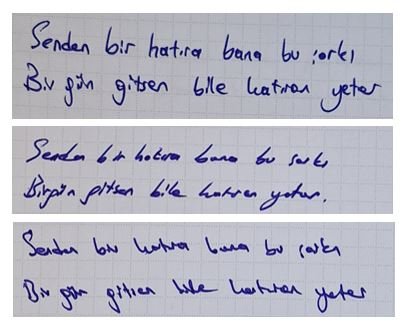 Senden bir hatıra bana bu şarkı
Bir gün gitsen bile hatıran yeter
Senden bir hatıra bana bu şarkı
Birgün gitsen bile hatıran yeter.
Senden bir hatıra bana bu şarkı
Bir gün gitsen bile hatıran yeter